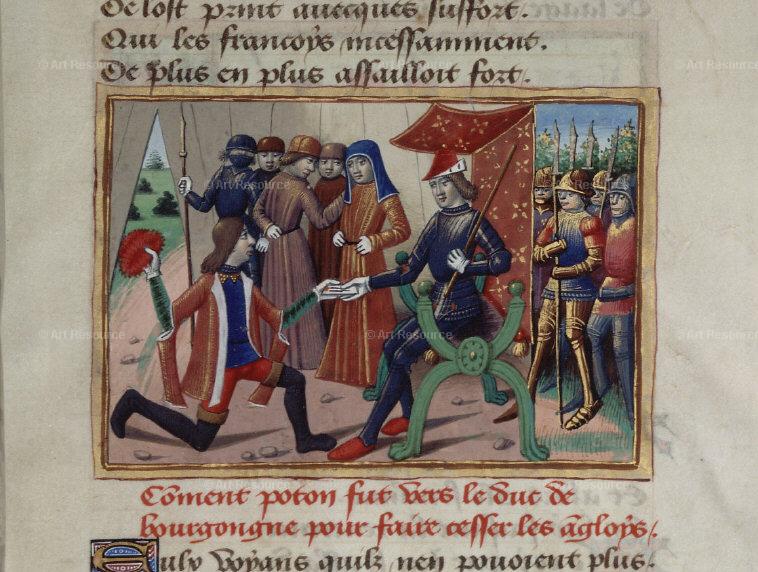 De lost print auecques suffort.
Qui les francoys incessamment.
De plus en plus assailloit fort.
Coment poton fut vers le duc de
bourgongne pour faire cesser les agloys.
Euly voyans quilz nen pouoient plus.
© Art Resource